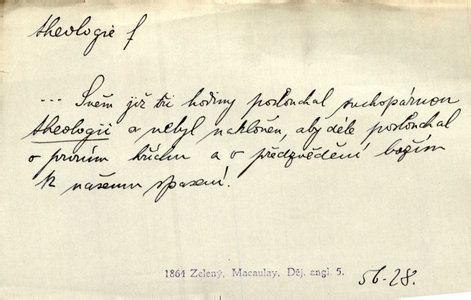 theologie f
... Sněm již tři hodiny poslouchal suchopárnou
theologii a nebyl nakloněn, aby déle poslouchal
o prvním hříchu a o předzvědění božím
k našemu spasení.
1864 Zelený, Macaulay, Děj. angl. 5.
56-28.